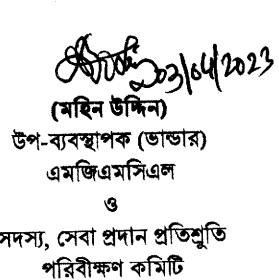 03/04/2023
(মহিন উদ্দিন)
উপ-ব্যবস্থাপক (ভান্ডার)
এমজিএমসিএল
ও
সদস্য, সেবা প্রদান প্রতিশ্রুতি
পরিবীক্ষণ কমিটি